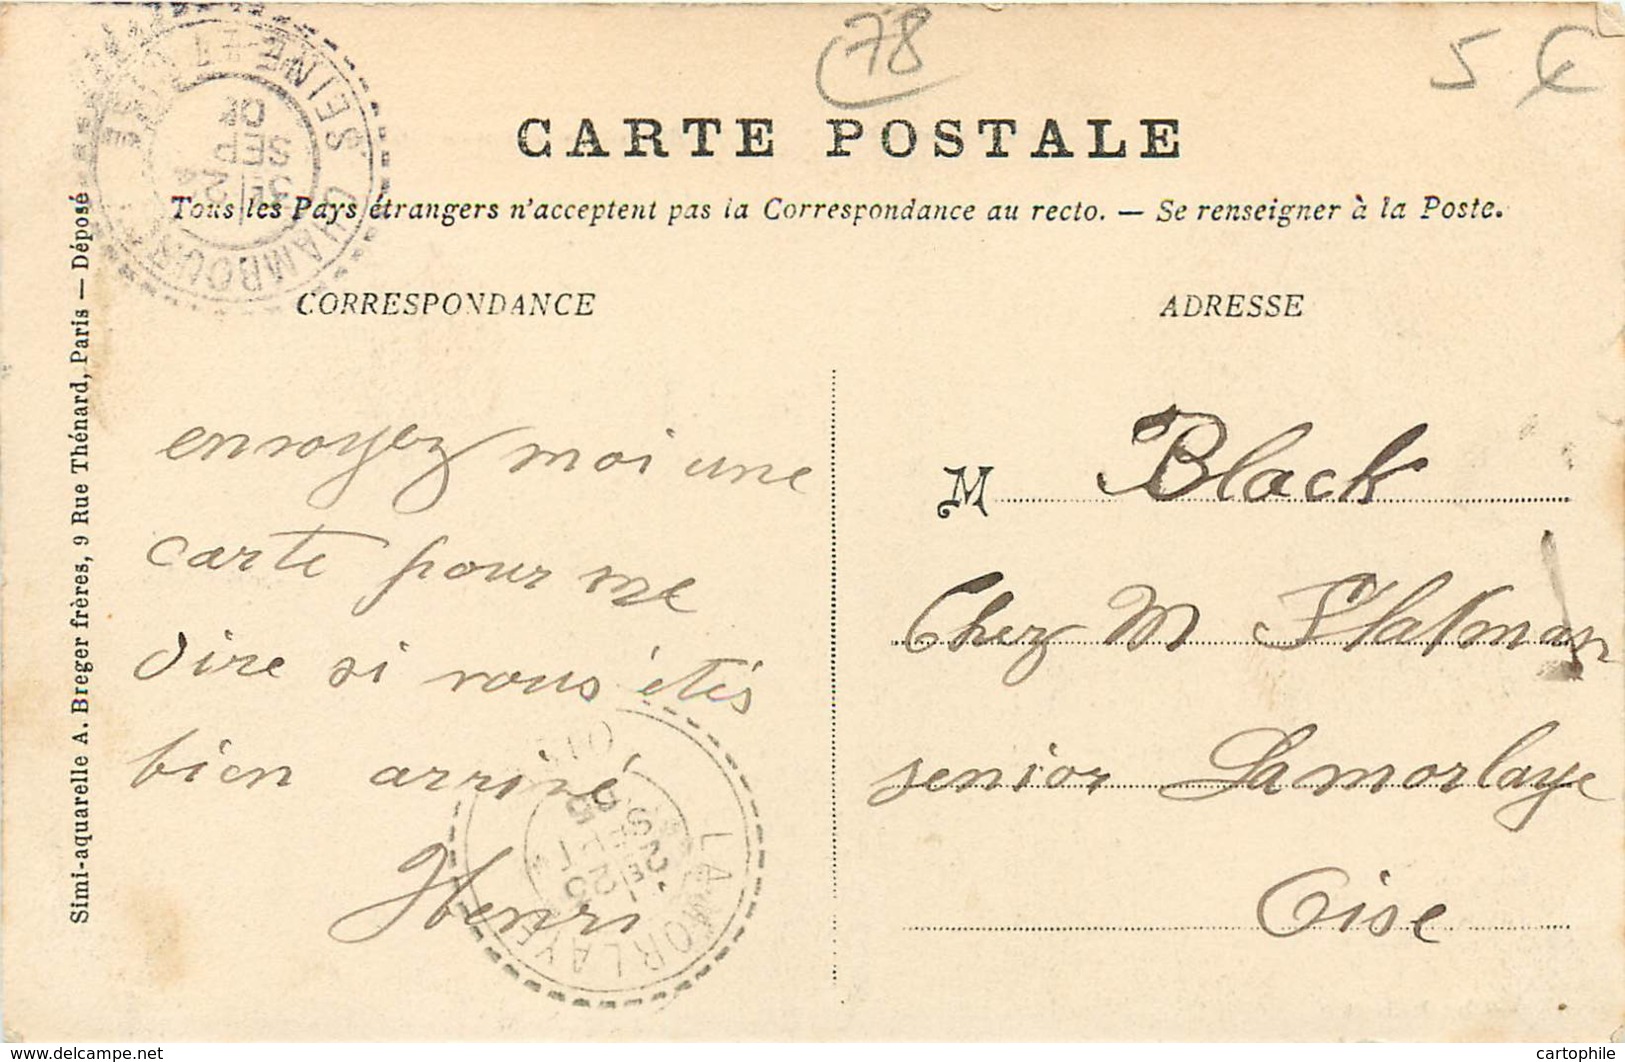 78
5 €
CARTE POSTALE
Tous les Pays étrangers n'acceptent pas la Correspondance au recto. — Se renseigner à la Poste.
CORRESPONDANCE
ADRESSE
envoyez moi une
carte pour me
dire si vous étés
bien arrivé
Henri
M Black
Chez M Flatman
senior Lamorlaye
Oise
Simi-aquarelle A. Breger frères, 9 Rue Thénard, Paris — Déposé
CHAMBOURCY
SEINE-ET-OISE
SEP
LAMORLAYE
OISE
25
www.delcampe.net
cartophile